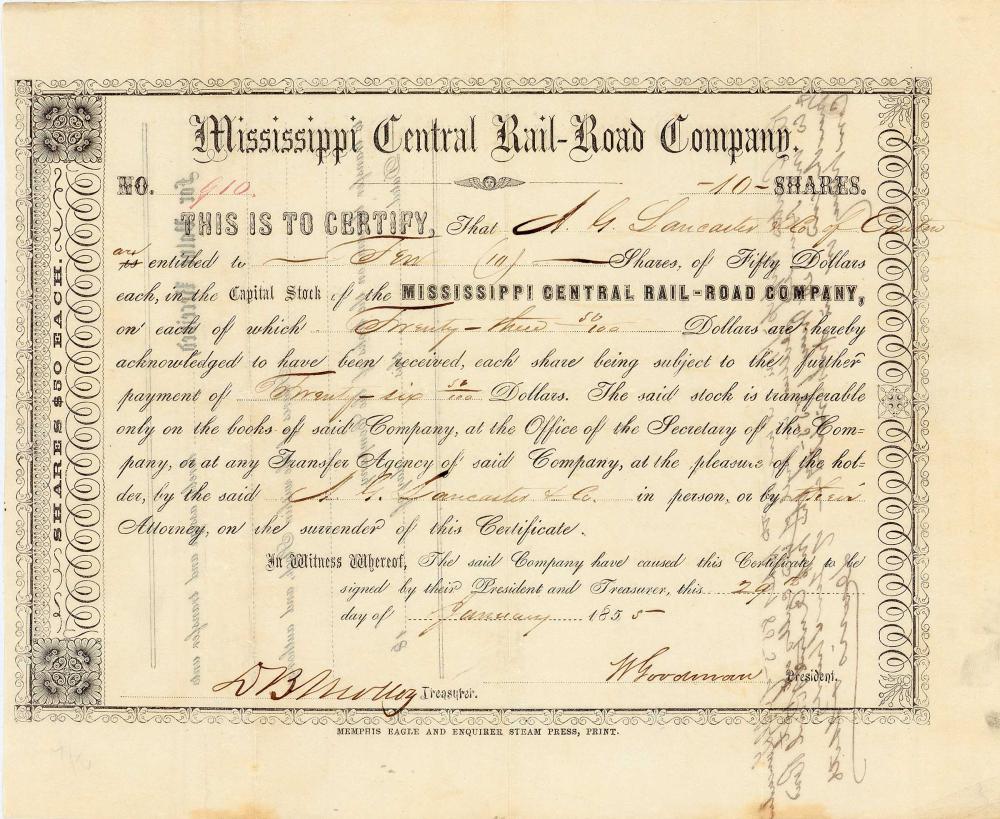 Mississippi Central Rail-Road Company.
NO. 910. -10- SHARES.
THIS IS TO CERTIFY, That A. G. Lancaster & Co. of Canton
are entitled to Ten (10) Shares, of Fifty Dollars
each, in the Capital Stock of the MISSISSIPPI CENTRAL RAIL-ROAD COMPANY,
on each of which Twenty-three 50/100 Dollars are hereby
acknowledged to have been received, each share being subject to the further
payment of Twenty-six 50/100 Dollars. The said stock is transferable
only on the books of said Company, at the Office of the Secretary of the Com-
pany, or at any Transfer Agency of said Company, at the pleasure of the hol-
der, by the said A. G. Lancaster & Co. in person, or by their
Attorney, on the surrender of this Certificate.
In Witness Whereof, The said Company have caused this Certificate to be
signed by their President and Treasurer, this 29th
day of January 1855
D B Molloy Treasurer. W Goodman President.
MEMPHIS EAGLE AND ENQUIRER STEAM PRESS, PRINT.
SHARES $50 EACH.